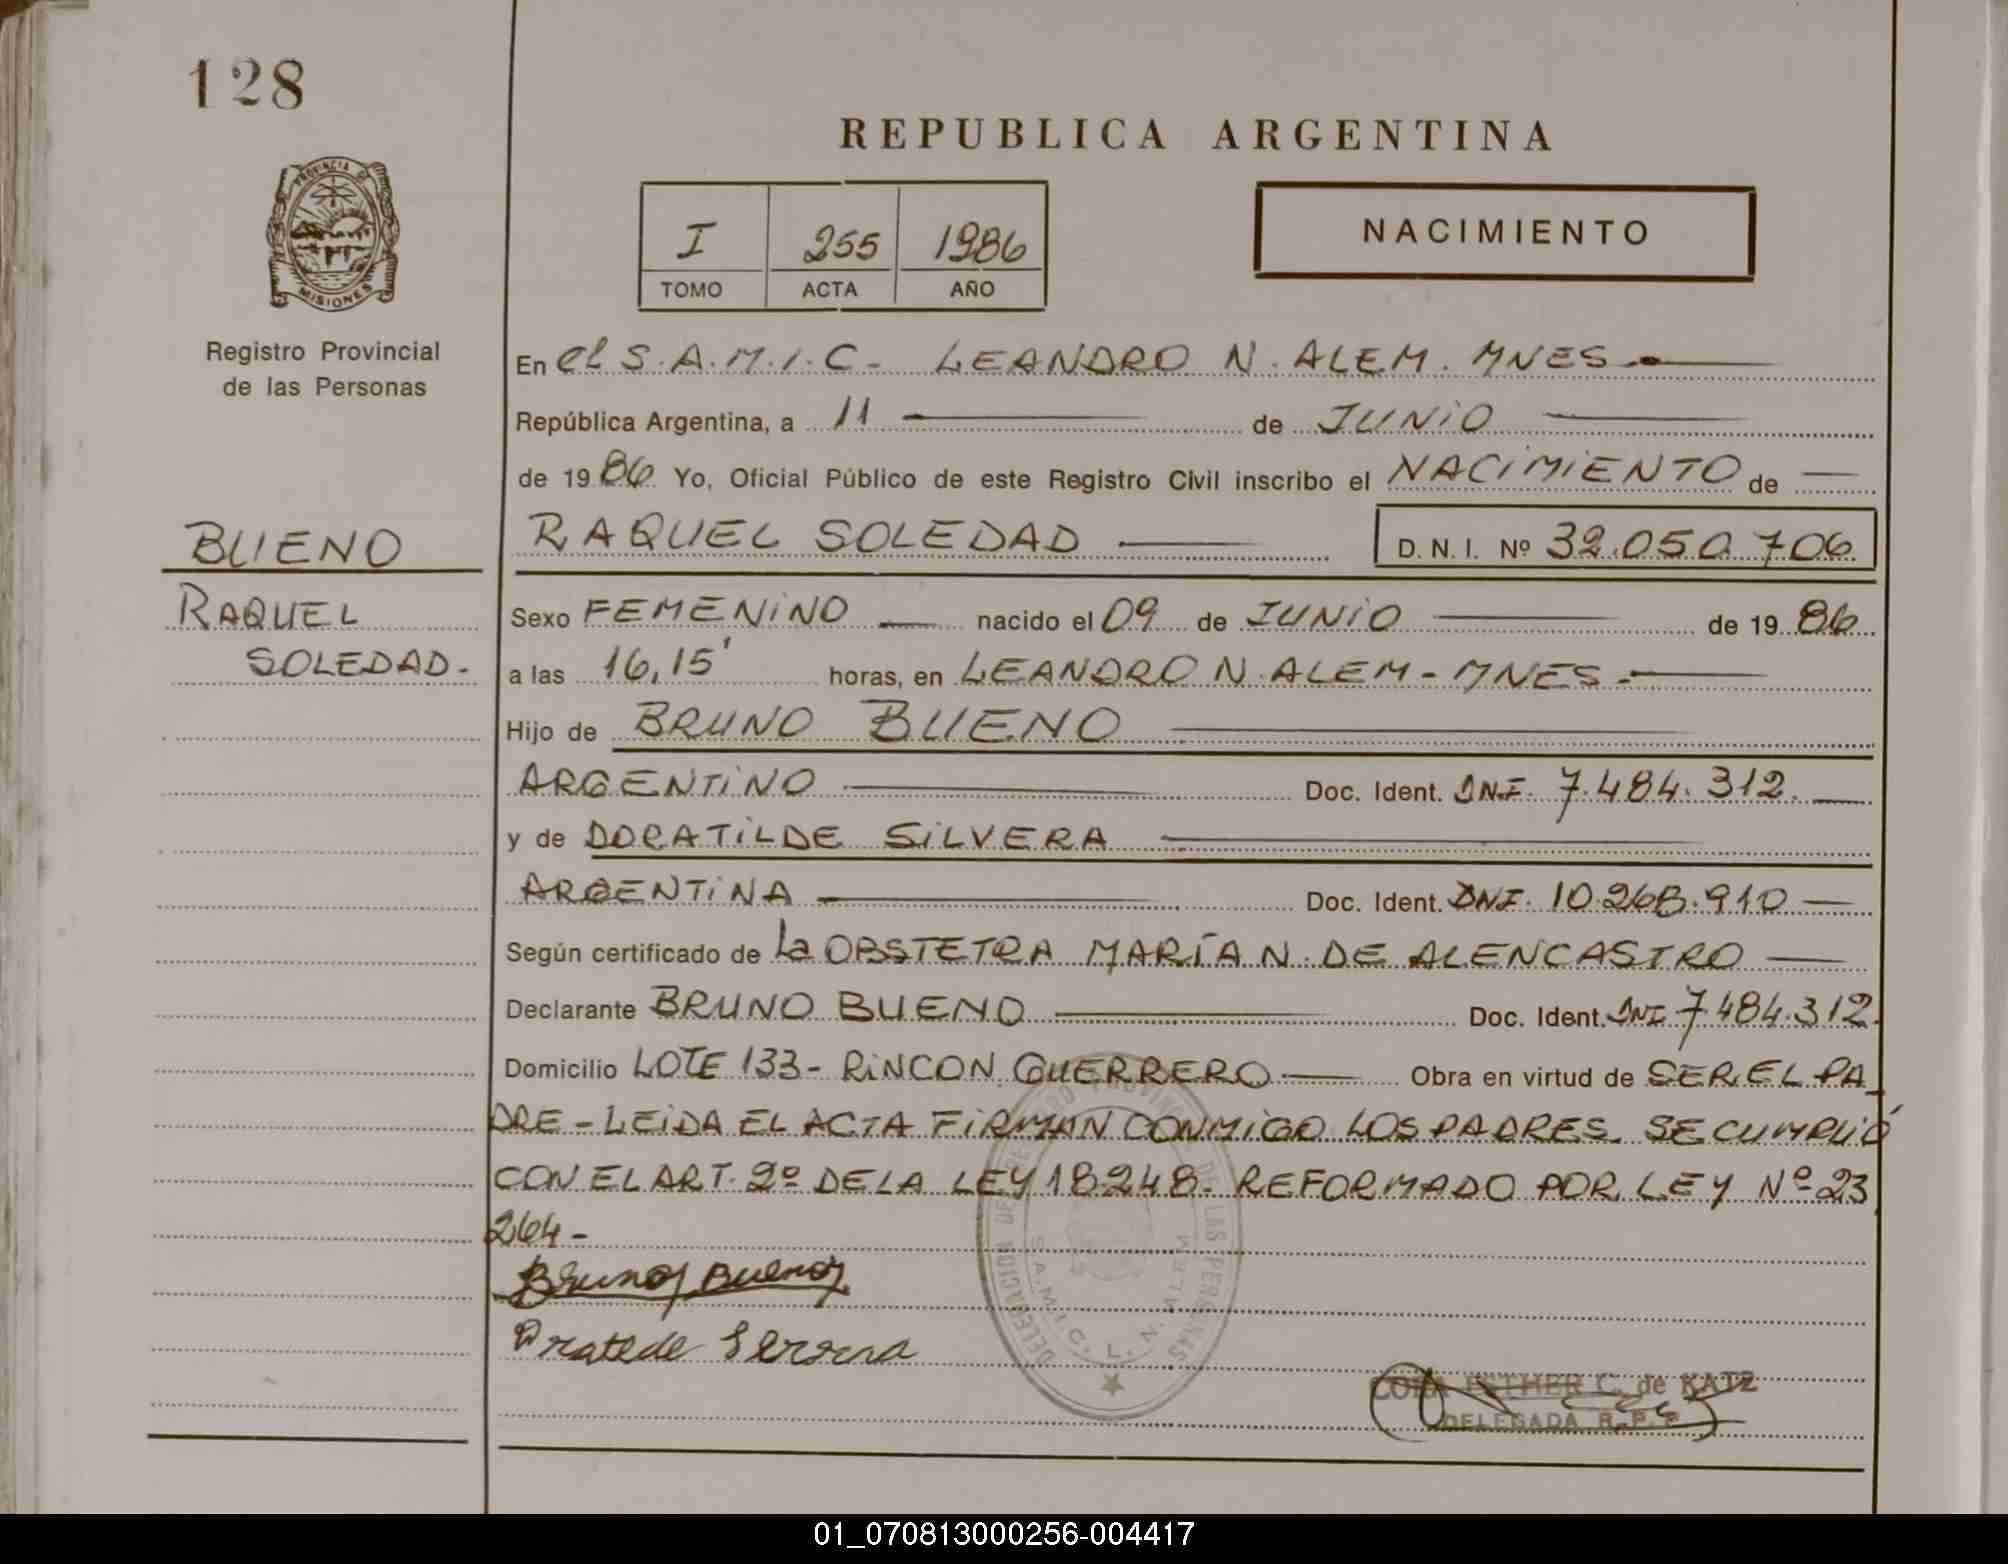 128
REPUBLICA ARGENTINA
PROVINCIA DE
MISIONES
Registro Provincial
de las Personas
I 255 1986
TOMO ACTA AÑO
NACIMIENTO
En el S.A.M.I.C- LEANDRO N. ALEM. MNES
República Argentina, a 11 de JUNiO
de 1986 Yo, Oficial Público de este Registro Civil inscribo el NACiMiENTO de
BUENO
RAQUEL SOLEDAD D.N.I. Nº 32.050.706
RAQUEL
SOLEDAD.
Sexo FEMENiNO nacido el 09 de JUNiO de 1986
a las 16,15' horas, en LEANDRO N. ALEM - MNES -
Hijo de BRUNO BUENO
ARGENTiNO Doc. Ident. DNI. 7.484.312.
y de DORATiLDE SiLVERA
ARGENTiNA Doc. Ident. DNI. 10.268.910
Según certificado de La OBSTETRA MARÍA N. DE ALENCASTRO
Declarante BRUNO BUENO Doc. Ident. DNI 7.484.312.
Domicilio LOTE 133- RiNCON GUERRERO Obra en virtud de SER EL PA
DRE - LEiDA EL ACTA FiRMAN CONMiGO LOS PADRES. SE CUMPLiÓ
CON EL ART. 2º DE LA LEY 18248. REFORMADO POR LEY Nº 23
264-
Bruno Bueno
DELEGACION DE LAS PERSONAS
S.A.M.I.C. L.N. ALEM
ESTHER C. de KATZ
DELEGADA R.P.P.
01_070813000256-004417